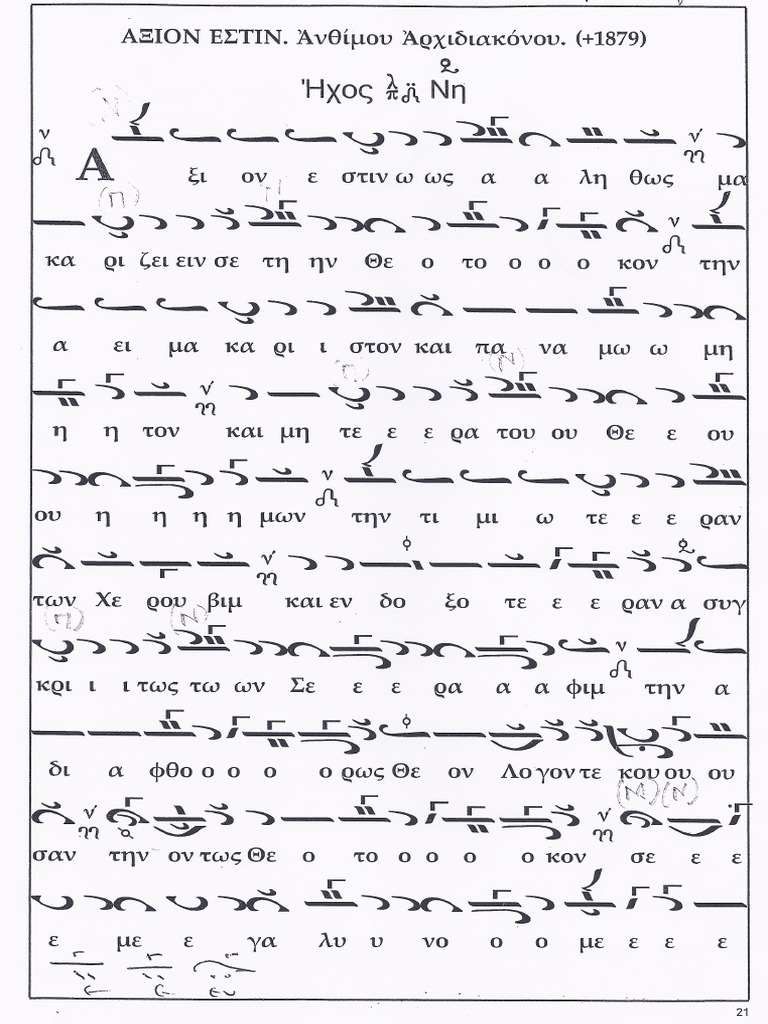 ΑΞΙΟΝ ΕΣΤΙΝ. Ἀνθίμου Ἀρχιδιακόνου. (+1879)
Ἦχος Νη
Α ξι ον ε στιν ω ως α α λη θως μα
κα ρι ζει ειν σε τη ην Θε ο το ο ο ο κον την
α ει μα κα ρι ι στον και πα να μω ω μη
η η τον και μη τε ε ε ρα του ου Θε ε ου
ου η η η η μων την τι μι ω τε ε ε ραν
των Χε ρου βιμ και εν δο ξο τε ε ε ραν α συγ
κρι ι ι τως τω ων Σε ε ε ρα α α φιμ την α
δι α φθο ο ο ο ο ρως Θε ον Λο γον τε κου ου ου
σαν την ον τως Θε ο το ο ο ο ο κον σε ε ε
ε με ε γα λυ υ νο ο ο με ε ε ε
21